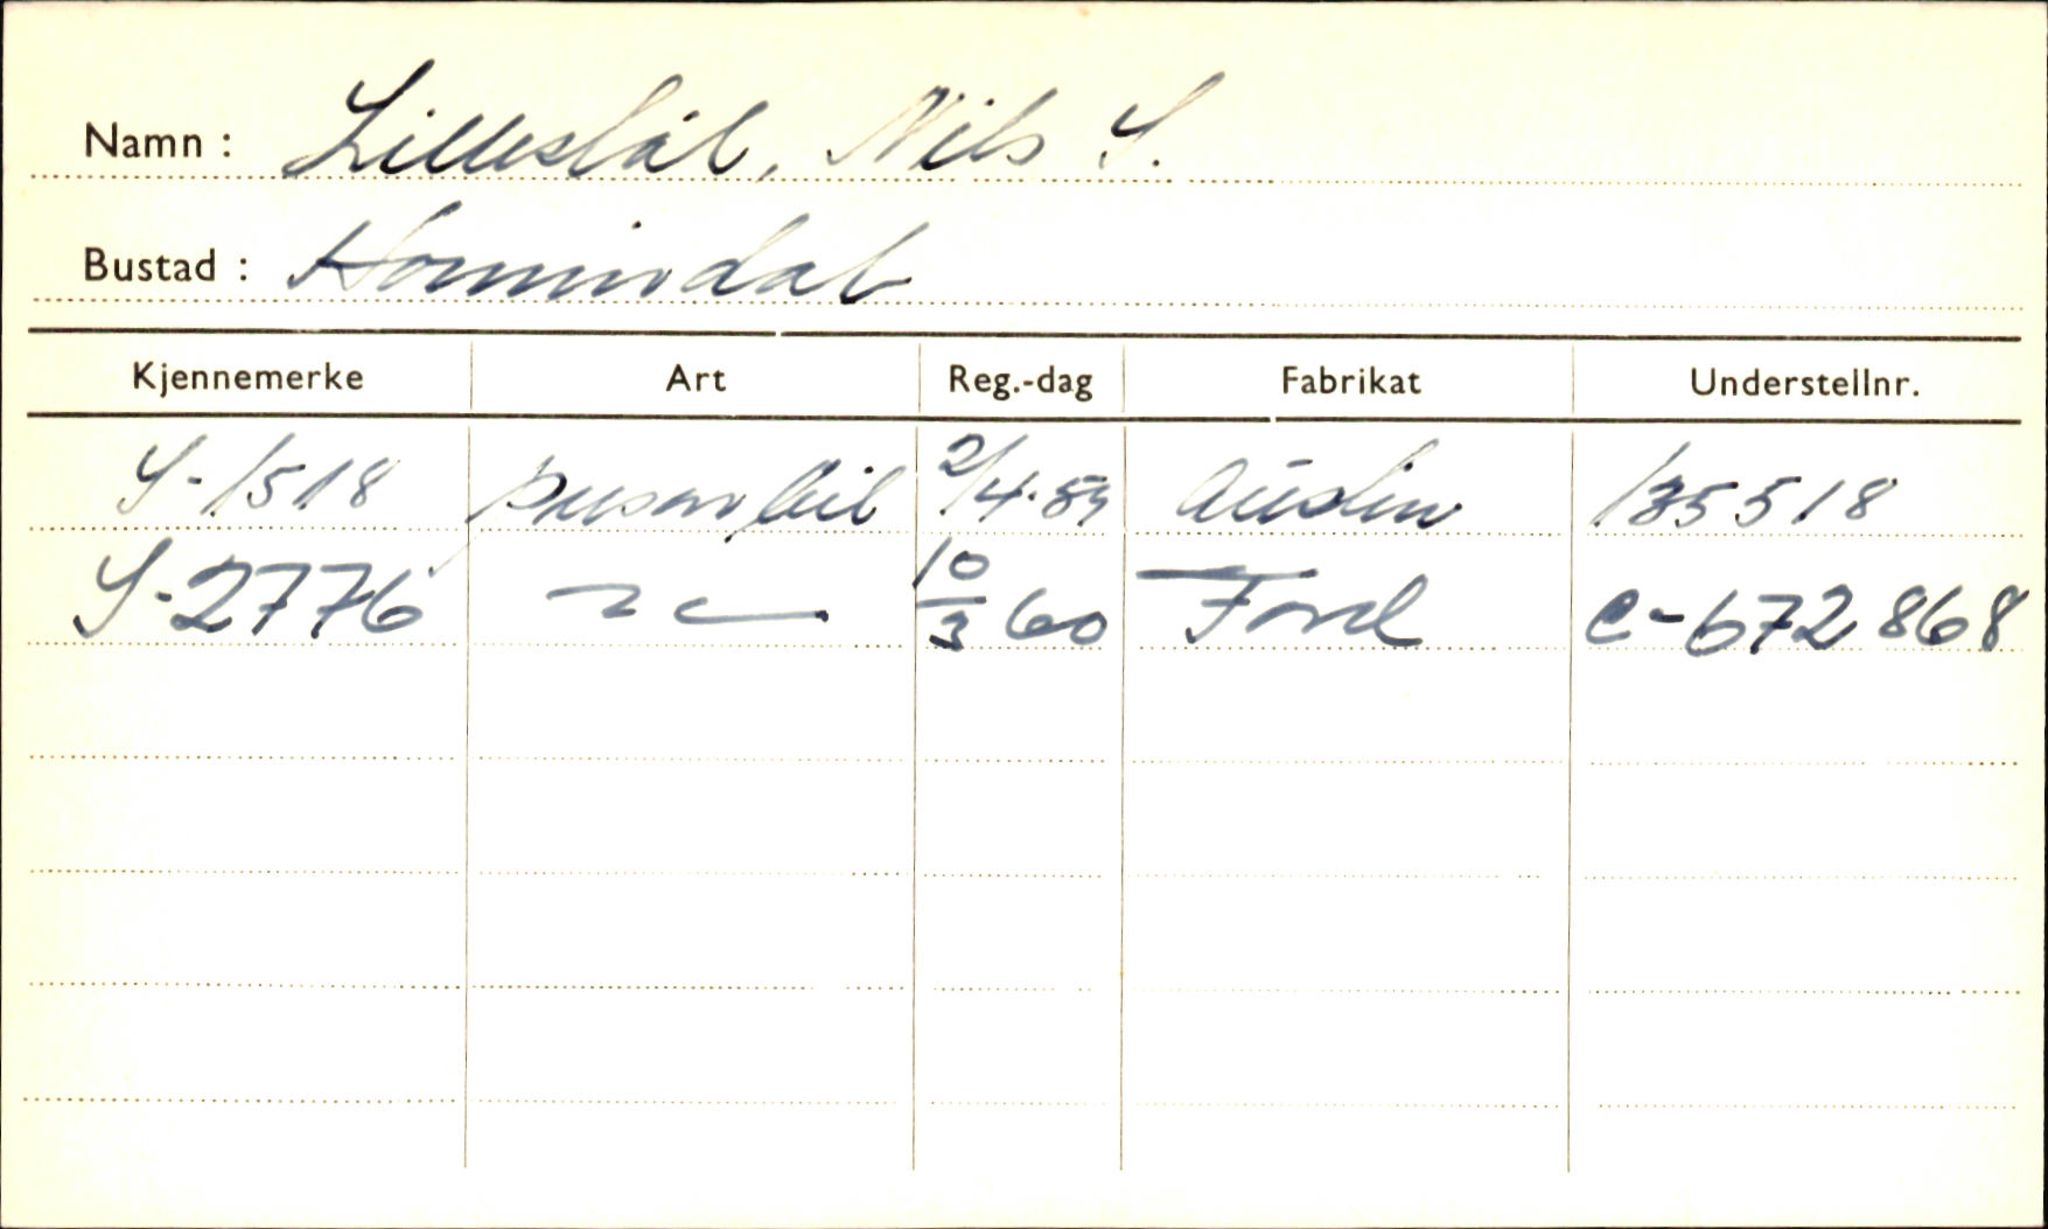 Namn : Lilleslål, Nils S.
Bustad : Hornindal
Kjennemerke Art Reg.-dag Fabrikat Understellnr.
S-1518 personbil 2/4-59 Austin 135518
S-2776 10/3 60 Ford C-672868